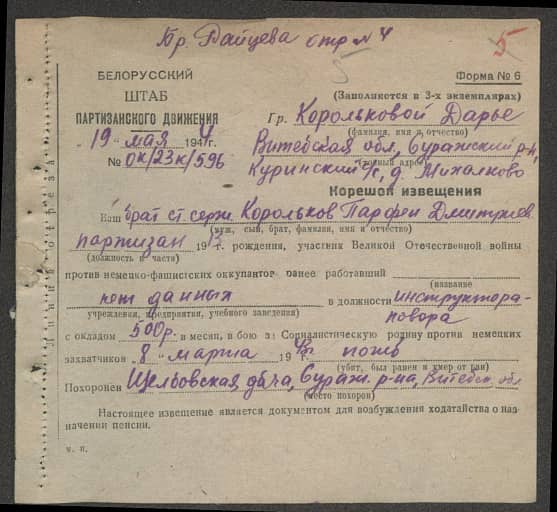 Бр. Райцева отр № 4
5
5
БЕЛОРУССКИЙ
ШТАБ
ПАРТИЗАНСКОГО ДВИЖЕНИЯ
19 мая 1944 г.
№ ок/23к/596
Форма № 6
(Заполняется в 3-х экземплярах)
Гр. Корольковой Дарье
(фамилия, имя и отчество)
Витебская обл., Суражский р-н,
(полный адрес)
Куринский с/с, д. Михалково
Корешок извещения
Ваш брат ст. серж. Корольков Парфен Дмитриев
(муж, сын, брат, фамилия, имя и отчество)
партизан 19 рождения, участник Великой Отечественной войны
(должность и части)
против немецко-фашистских оккупантов ранее работавший
(название
нет данных в должности инструктора-
учреждения, предприятия, учебного заведения)
повора
с окладом 500 р. в месяц, в бою за Социалистическую родину против немецких
захватчиков 8 марта 194 погиб
(убит, был ранен и умер от ран)
Похоронен Щелбовская дача, Сураж. р-на, Витебск. обл
(место похорон)
Настоящее извещение является документом для возбуждения ходатайства о наз-
начении пенсии.
м. п.